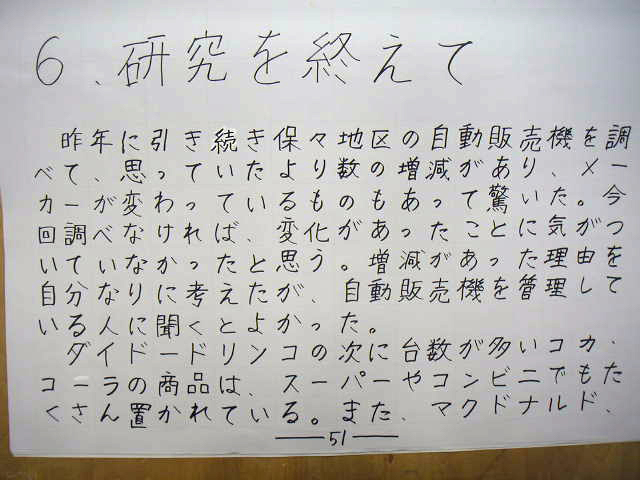 6、研究を終えて
昨年に引き続き保々地区の自動販売機を調
べて、思っていたより数の増減があり、メー
カーが変わっているものもあって驚いた。今
回調べなければ、変化があったことに気がつ
いていなかったと思う。増減があった理由を
自分なりに考えたが、自動販売機を管理して
いる人に聞くとよかった。
ダイドードリンコの次に台数が多いコカ・
コーラの商品は、スーパーやコンビニでもた
くさん置かれている。また、マクドナルド、
51